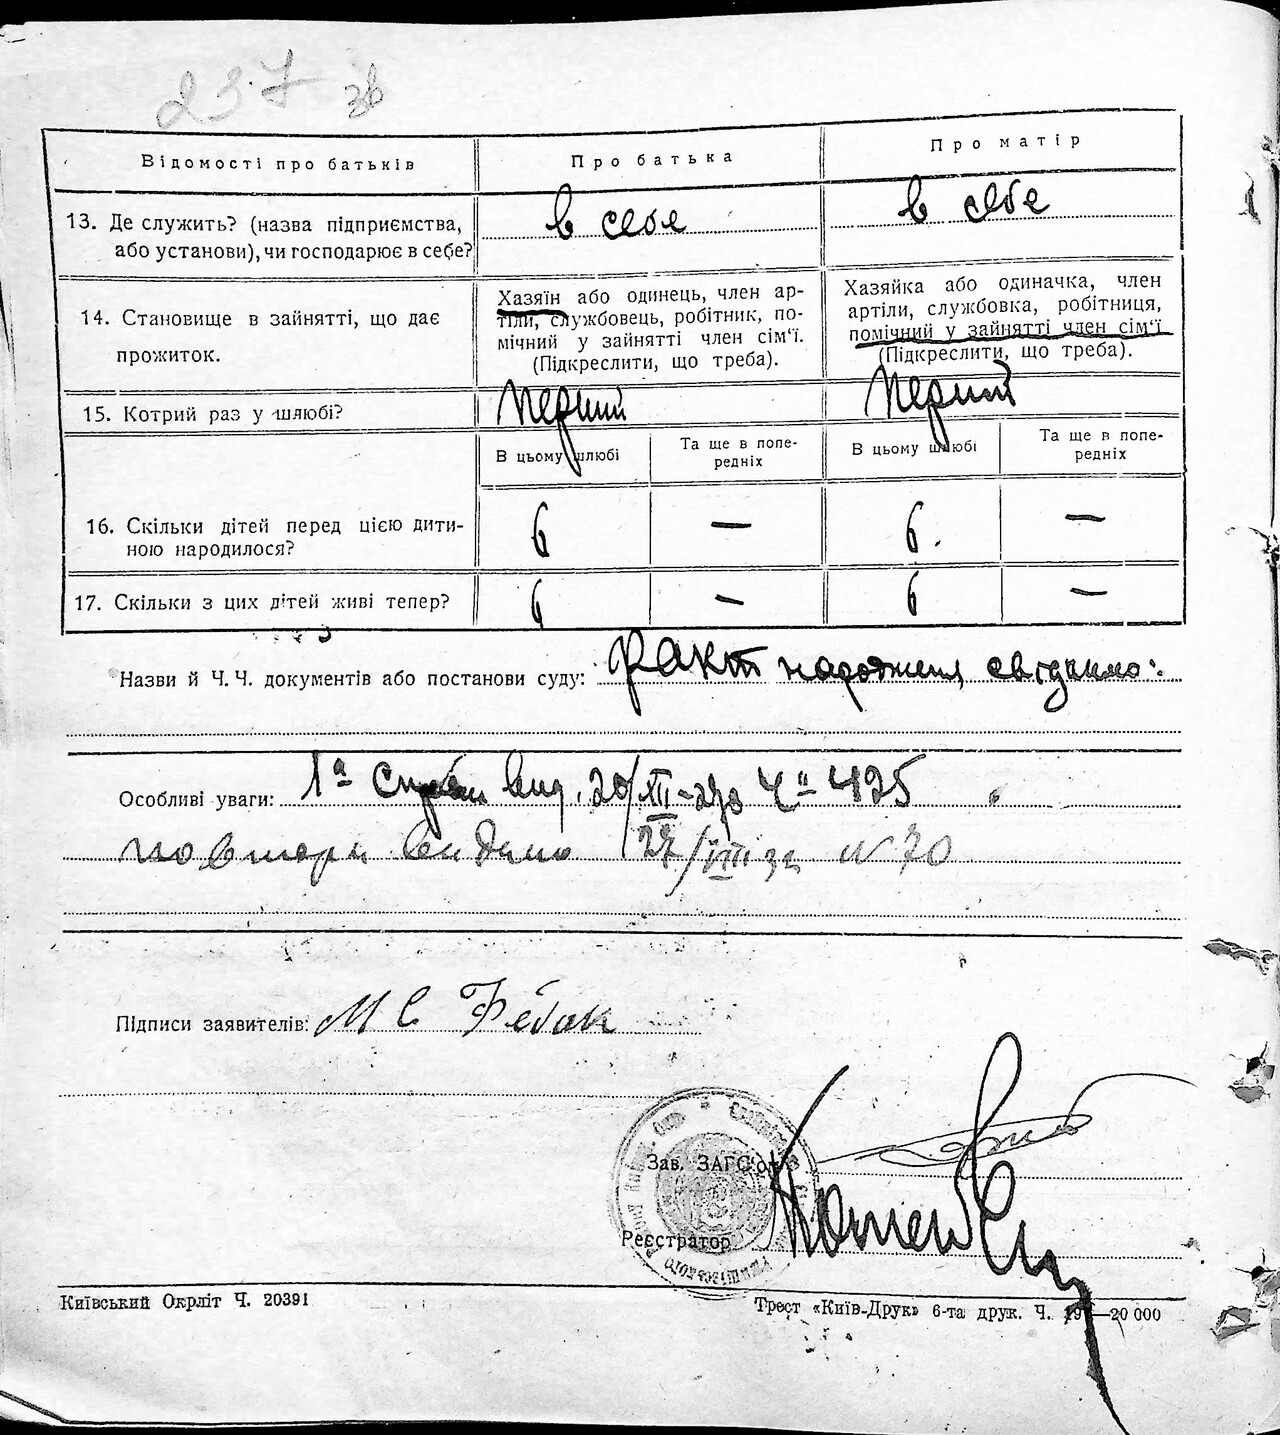 237 зв
Відомості про батьків
Про батька
Про матір
13. Де служить? (назва підприємства,
або установи), чи господарює в себе?
в себя
в себе
14. Становище в зайнятті, що дає
прожиток.
Хазяїн або одинець, член ар-
тіли, службовець, робітник, по-
мічний у зайнятті член сім'ї.
(Підкреслити, що треба).
Хазяйка або одиначка, член
артіли, службовка, робітниця,
помічний у зайнятті член сім'ї
(Підкреслити, що треба).
15. Котрий раз у шлюбі?
перший
перший
В цьому шлюбі
Та ще в попе-
редніх
В цьому шлюбі
Та ще в попе-
редніх
16. Скільки дітей перед цією дити-
ною народилося?
6 — 6. —
17. Скільки з цих дітей живі тепер?
6 — 6 —
Назви й Ч. Ч. документів або постанови суду: Факт народження свідчимо:
Особливі уваги: вид. 20/XII Ч 425
повторн видано 27/VIII за N 70
Підписи заявителів: М С
Зав. ЗАГС'ом
Реєстратор
Київський Окрліт Ч. 20391
Трест «Київ-Друк» 6-та друк. Ч. —20 000